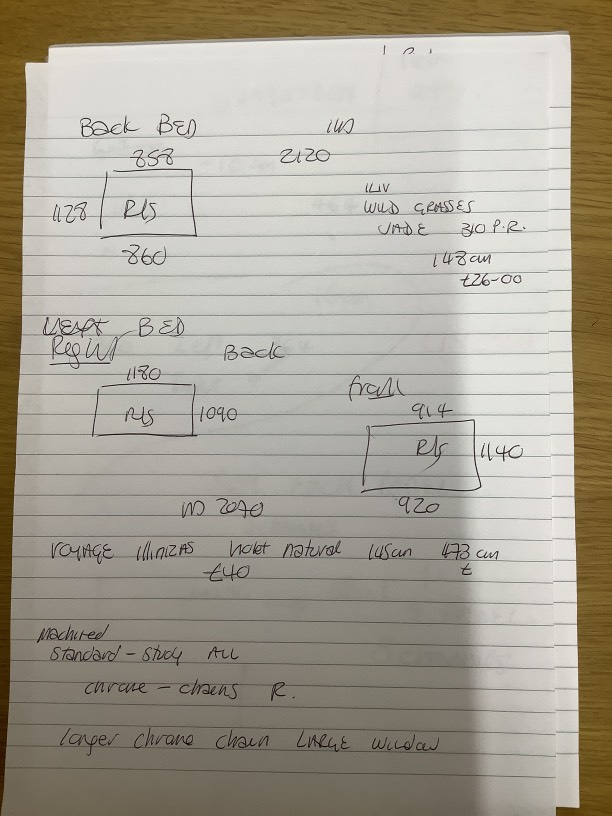 Back BED
858 2120
1128 Rls
860
WILD GRASSES
JADE 310 P.R.
148cm
£26-00
BED
Right Back
1180
Rls 1090
front
914
Rls 1140
920
2070
VOYAGE natural 145cm 473 cm
£40 £
Machined
Standard - Study ALL
chrome - chains R.
longer chrome chain LARGE window